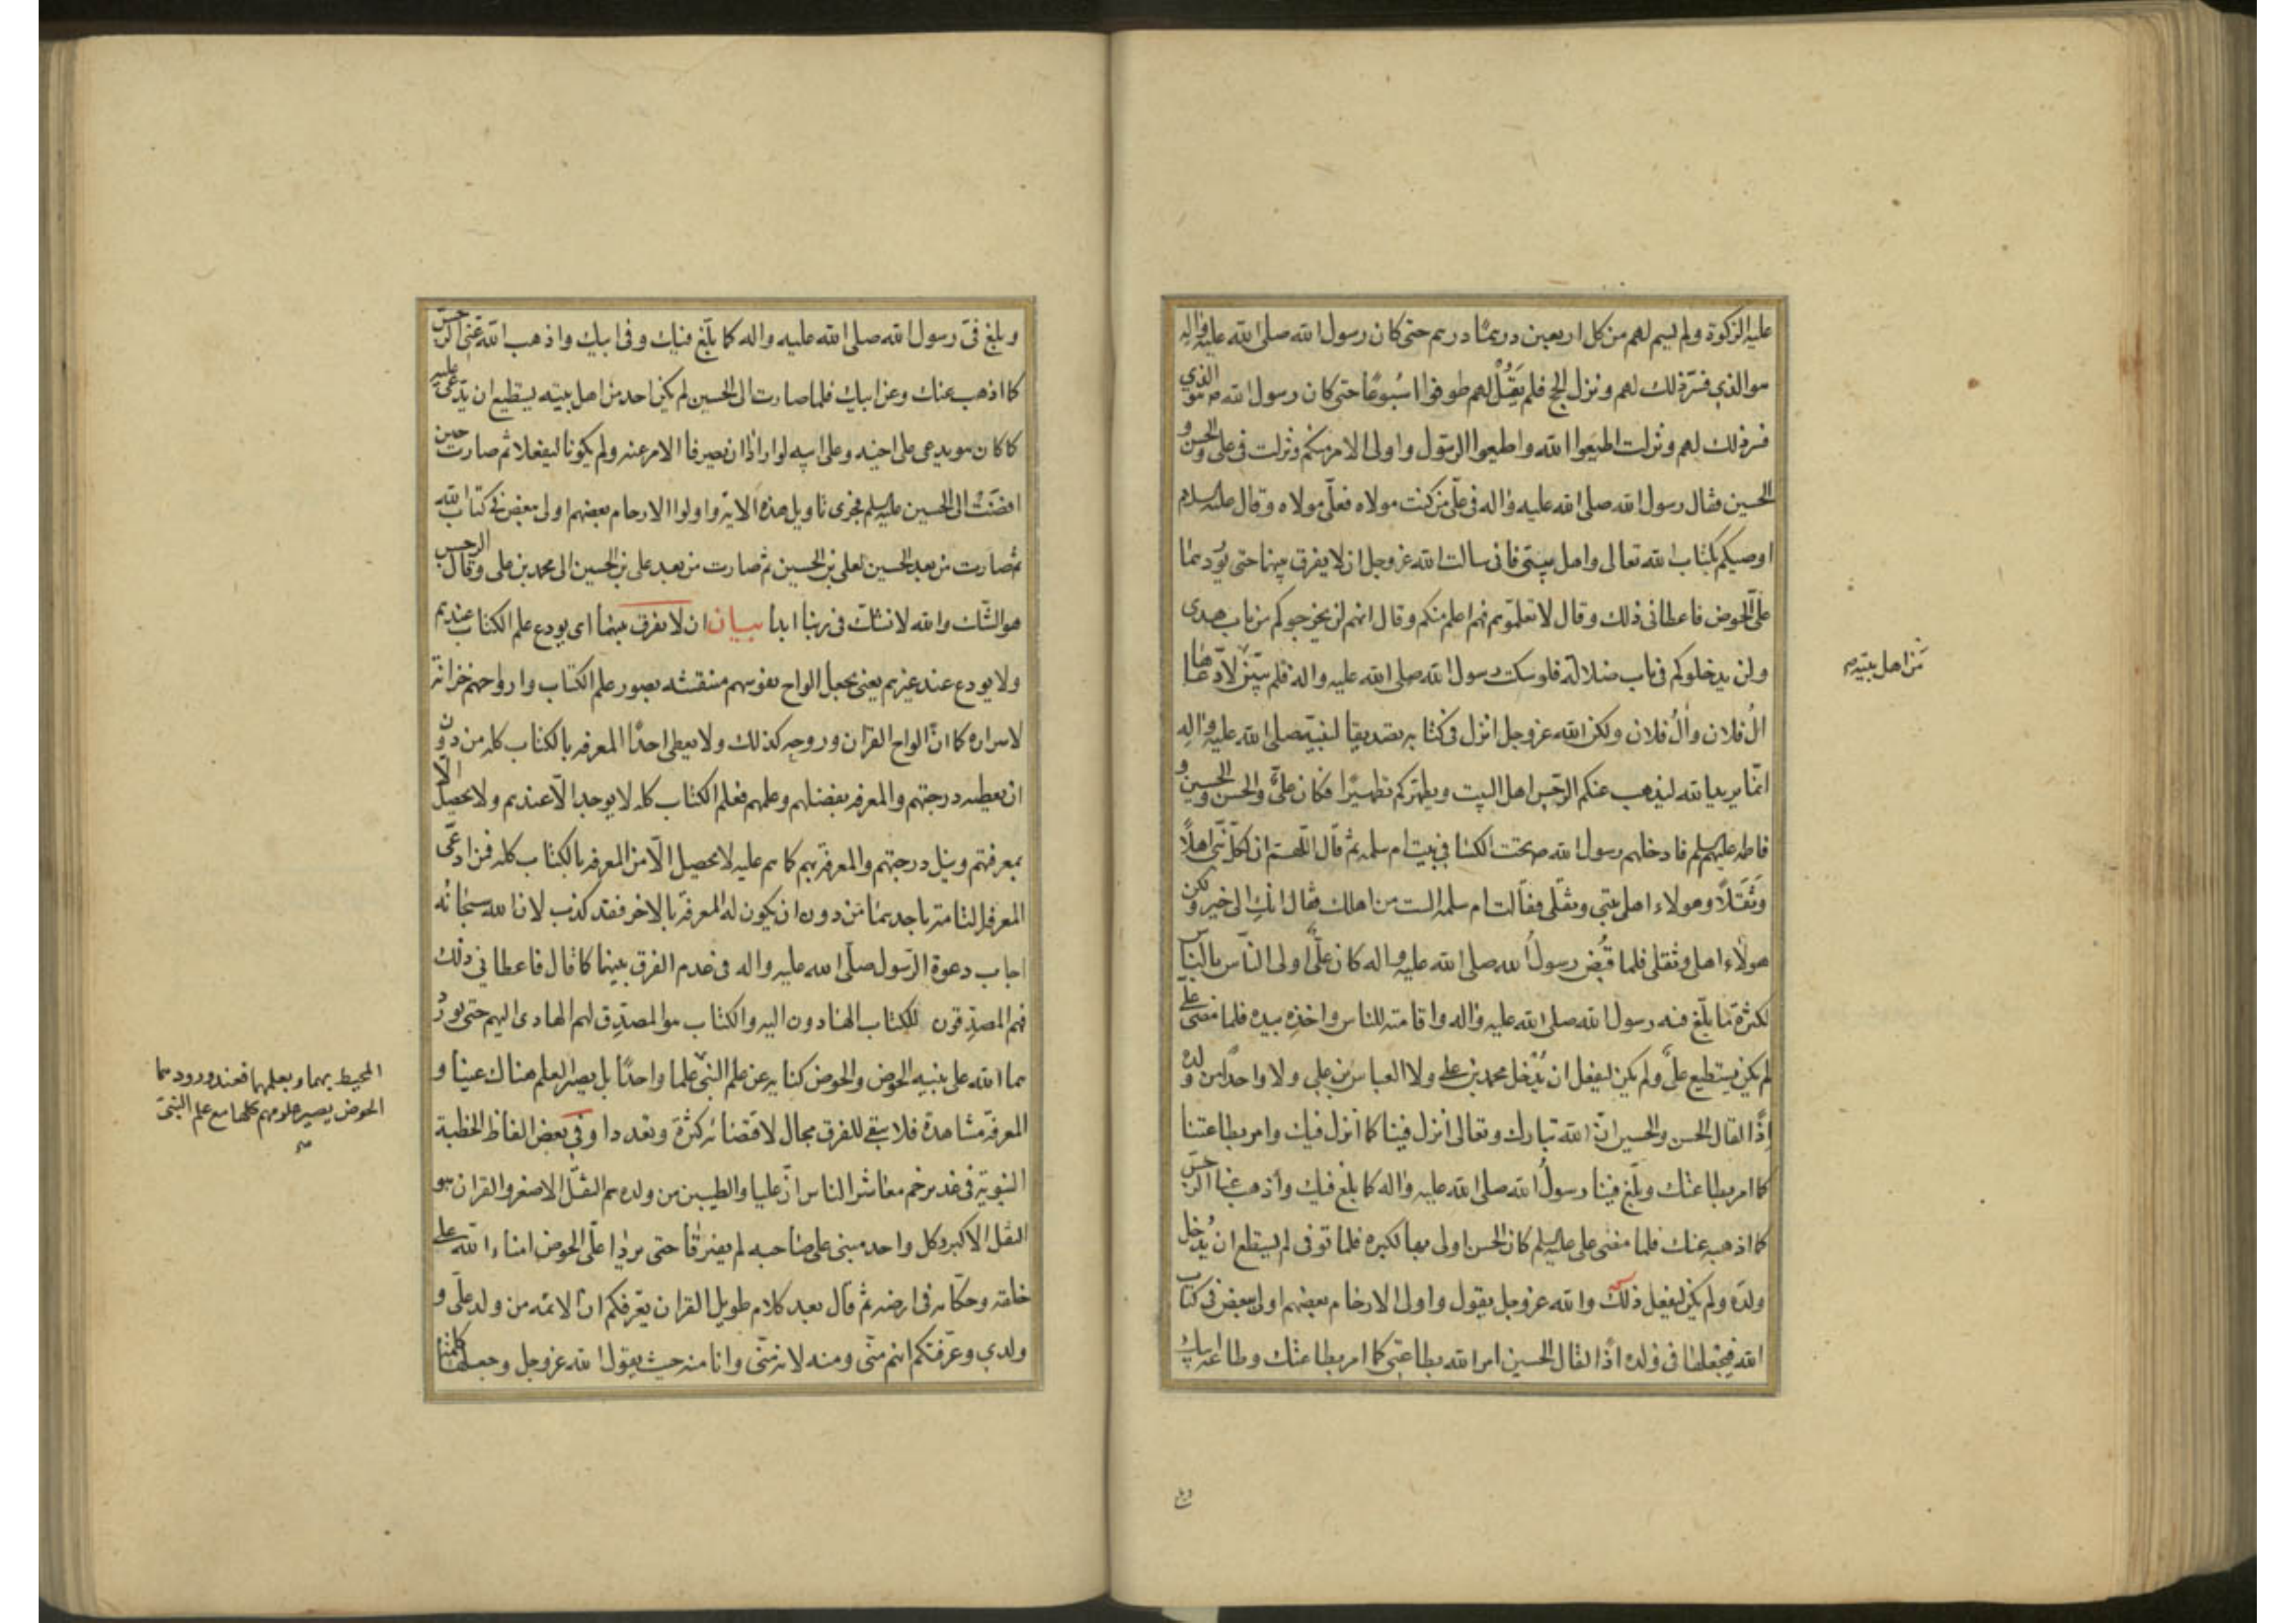 عليه الزكوة ولم يسم لهم من كل اربعين درهمًا درهم حتى كان رسول الله صلى الله عليه واله
هو الذي فسّر ذلك لهم ونزل الحج فلم يَقُلْ لهم طوفوا اسبُوعًا حتى كان رسول الله ص هو الذي
فسر ذلك لهم ونزلت اطيعوا الله واطيعوا الرسول واولى الامر منكم ونزلت في على والحسن و
الحسين فقال رسول الله صلى الله عليه واله في علّي من كنت مولاه فعلّي مولاه وقال عليه السلام
اوصيكم بكتاب الله تعالى واهل بيتي فانى سالت الله عز وجل ان لا يفرق بينهما حتى يوردهما
علّى الحوض فاعطانى ذلك وقال لا تعلموهم فهم اعلم منكم وقال انهم لن يخرجوكم من باب هدى
ولن يدخلوكم في باب ضلالة فلو سكت رسول الله صلى الله عليه واله فلم يبيّن لادّعاها
من اهل بيته
الُ فلان والُ فلان ولكن الله عز وجل انزل في كتابه تصديقا لنبيّه صلى الله عليه واله
انّما يريد الله ليذهب عنكم الرّجس اهل البيت ويطهّركم تطهيرًا فكان علىٌّ والحسن والحسين و
فاطمه عليهم السلم فادخلهم رسول الله ص تحت الكساء في بيت ام سلمه ثم قال اللهم ان لكل نبى اهلاً
وثَقَلاً وهولاء اهل بيتي وثقلى فقالت ام سلمه الست من اهلك فقال انكِ الى خير ولكن
هولاء اهلى وثقلى فلما قُبض رسولُ الله صلى الله عليه واله كان علىٌّ اولى الناس بالناس
لكثرة ما بلّغ فيه رسول الله صلى الله عليه واله واقامته للناس واخذه بيده فلما مضى على
لم يكن يستطيع علىٌّ ولم يكن ليفعل ان يُدْخل محمد بن على ولا العباس بن على ولا واحدًا من ولده
اذًا لقال الحسن والحسين انّ الله تبارك وتعالى انزل فينا كما انزل فيك وامر بطاعتنا
كما امر بطاعتك وبلّغ فينا رسولُ الله صلى الله عليه واله كما بلغ فيك واذهب عنا الرجس
كما اذهبه عنك فلما مضى على عليه السلم كان الحسن اولى بها لكبره فلما توفى لم يستطع ان يُدخل
ولده ولم يكن ليفعل ذلك والله عز وجل يقول واولوا الارحام بعضهم اولى ببعض في كتاب
الله فيجعلها في ولده اذًا لقال الحسين امر الله بطاعتي كما امر بطاعتك وطاعة ابيك
وبلغ
وبلغ فىّ رسول الله صلى الله عليه واله كما بلّغ فيك وفى ابيك واذهب الله عنّى الرجس
كما اذهب عنك وعن ابيك فلما صارت الى الحسين لم يكن احد من اهل بيته يستطيع ان يدّعى عليه
كما كان هو يدعى على اخيه وعلى ابيه لو ارادا ان يصرفا الامر عنه ولم يكونا ليفعلا ثم صارت حين
افضَتْ الى الحسين عليه السلم فجرى تاويل هذه الاية واولوا الارحام بعضهم اولى ببعض في كتاب الله
ثم صارت من بعد الحسين لعلى بن الحسين ثم صارت من بعد على بن الحسين الى محمد بن على وقال الرجس
هو الشّك والله لا نشك في ربنا ابدا بيان ان لا يفرق بينهما اى يودع علم الكتاب عندهم
ولا يودع عند غيرهم يعنى يجعل الواح نفوسهم منتقشه بصور علم الكتاب وارواحهم خزانة
لاسراره كما انّ الواح القران وروحه كذلك ولا يعطى احدًا المعرفه بالكتاب كله من دون
ان يعطيه درجتهم والمعرفه بفضلهم وعلمهم فعلم الكتاب كله لا يوجد الّا عندهم ولا يحصل الا
بمعرفتهم ونيل درجتهم والمعرفة بهم كما هم عليه لا يحصل الّا من المعرفه بالكتاب كله فمن ادعّى
المعرفة التامة باحدهما من دون ان يكون له المعرفة بالاخر فقد كذب لان الله سبحانه
اجاب دعوة الرّسول صلّى الله عليه واله في عدم الفرق بينهما كما قال فاعطانى ذلك
فهم المصدِّقون للكتاب الهادون اليه والكتاب هو المصدِّق لهم الهادى اليهم حتى يورد
هما الله على نبيه الحوض والحوض كنايه عن علم النبى علما واحدًا بل يصير العلم هناك عينا و
المحيط بهما وبعلمهما فعند ورودهما
الحوض يصير علومهم كلها مع علم النبىّ
المعرفة مشاهدة فلا يبقى للفرق مجال لاقتضائه كثرة وتعددا وفي بعض الفاظ الخطبة
النبوية في غدير خم معاشر الناس انّ عليا والطيبين من ولده هم الثقل الاصغر والقران هو
الثقل الاكبر وكل واحد مبنى على صاحبه لم يفترقا حتى يردا علّى الحوض امناء الله على
خلقه وحكّامه في ارضه ثم قال بعد كلام طويل القران يعّرفكم انّ الائمه من ولد على و
ولدى وعرّفتكم انهم منّى ومنه لانه منّى وانا منه حيث يقول الله عز وجل وجعلها كلمة